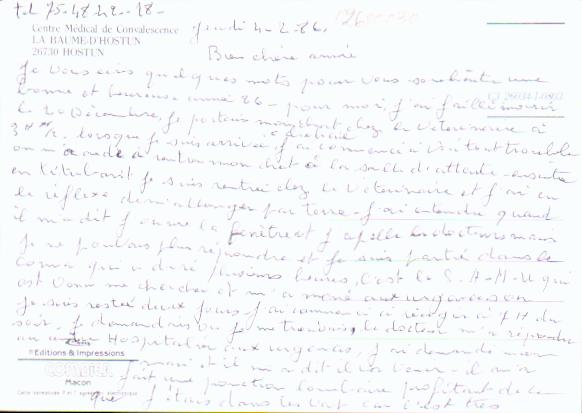 tel 75-48-42-18-
Centre Médical de Convalescence
LA BAUME-D'HOSTUN
26730 HOSTUN
Jeudi 4-2-86.
Bien chère amie
Je vous écris quelques mots pour vous souhaiter une
bonne et heureuse année 86 - pour moi j'ai failli mourir
le 20 Décembre, Je portais mon chat chez le Vétérinaire à
lorsque Je suis arrivée j'ai commencé à voir tout trouble
on m'a aidé à rentrer mon chat à la salle d'attente - ensuite
en titubant Je suis rentrée chez le Vétérinaire et j'ai eu
le réflexe de m'allonger par terre - J'ai entendu quand
il m'a dit j'ouvre la fenêtre et j'appelle les docteurs mais
Je ne pouvais plus répondre et Je suis partie dans le
Coma qui a duré plusieurs heures, C'est le S.A.M.U qui
est venu me chercher et m'a mené aux urgences on
Je suis restée deux Jours - J'ai commencé à réagir à 7 H du
soir, Je demandais où Je me trouvais, le docteur m'a répondu
au Hospitalier aux urgences, J'ai demandé mon
mari et il m'a dit il va venir - il m'a
fait une ponction lombaire profitant de ce
que J'étais dans les car c'est très
Editions & Impressions
COMBIER
Macon